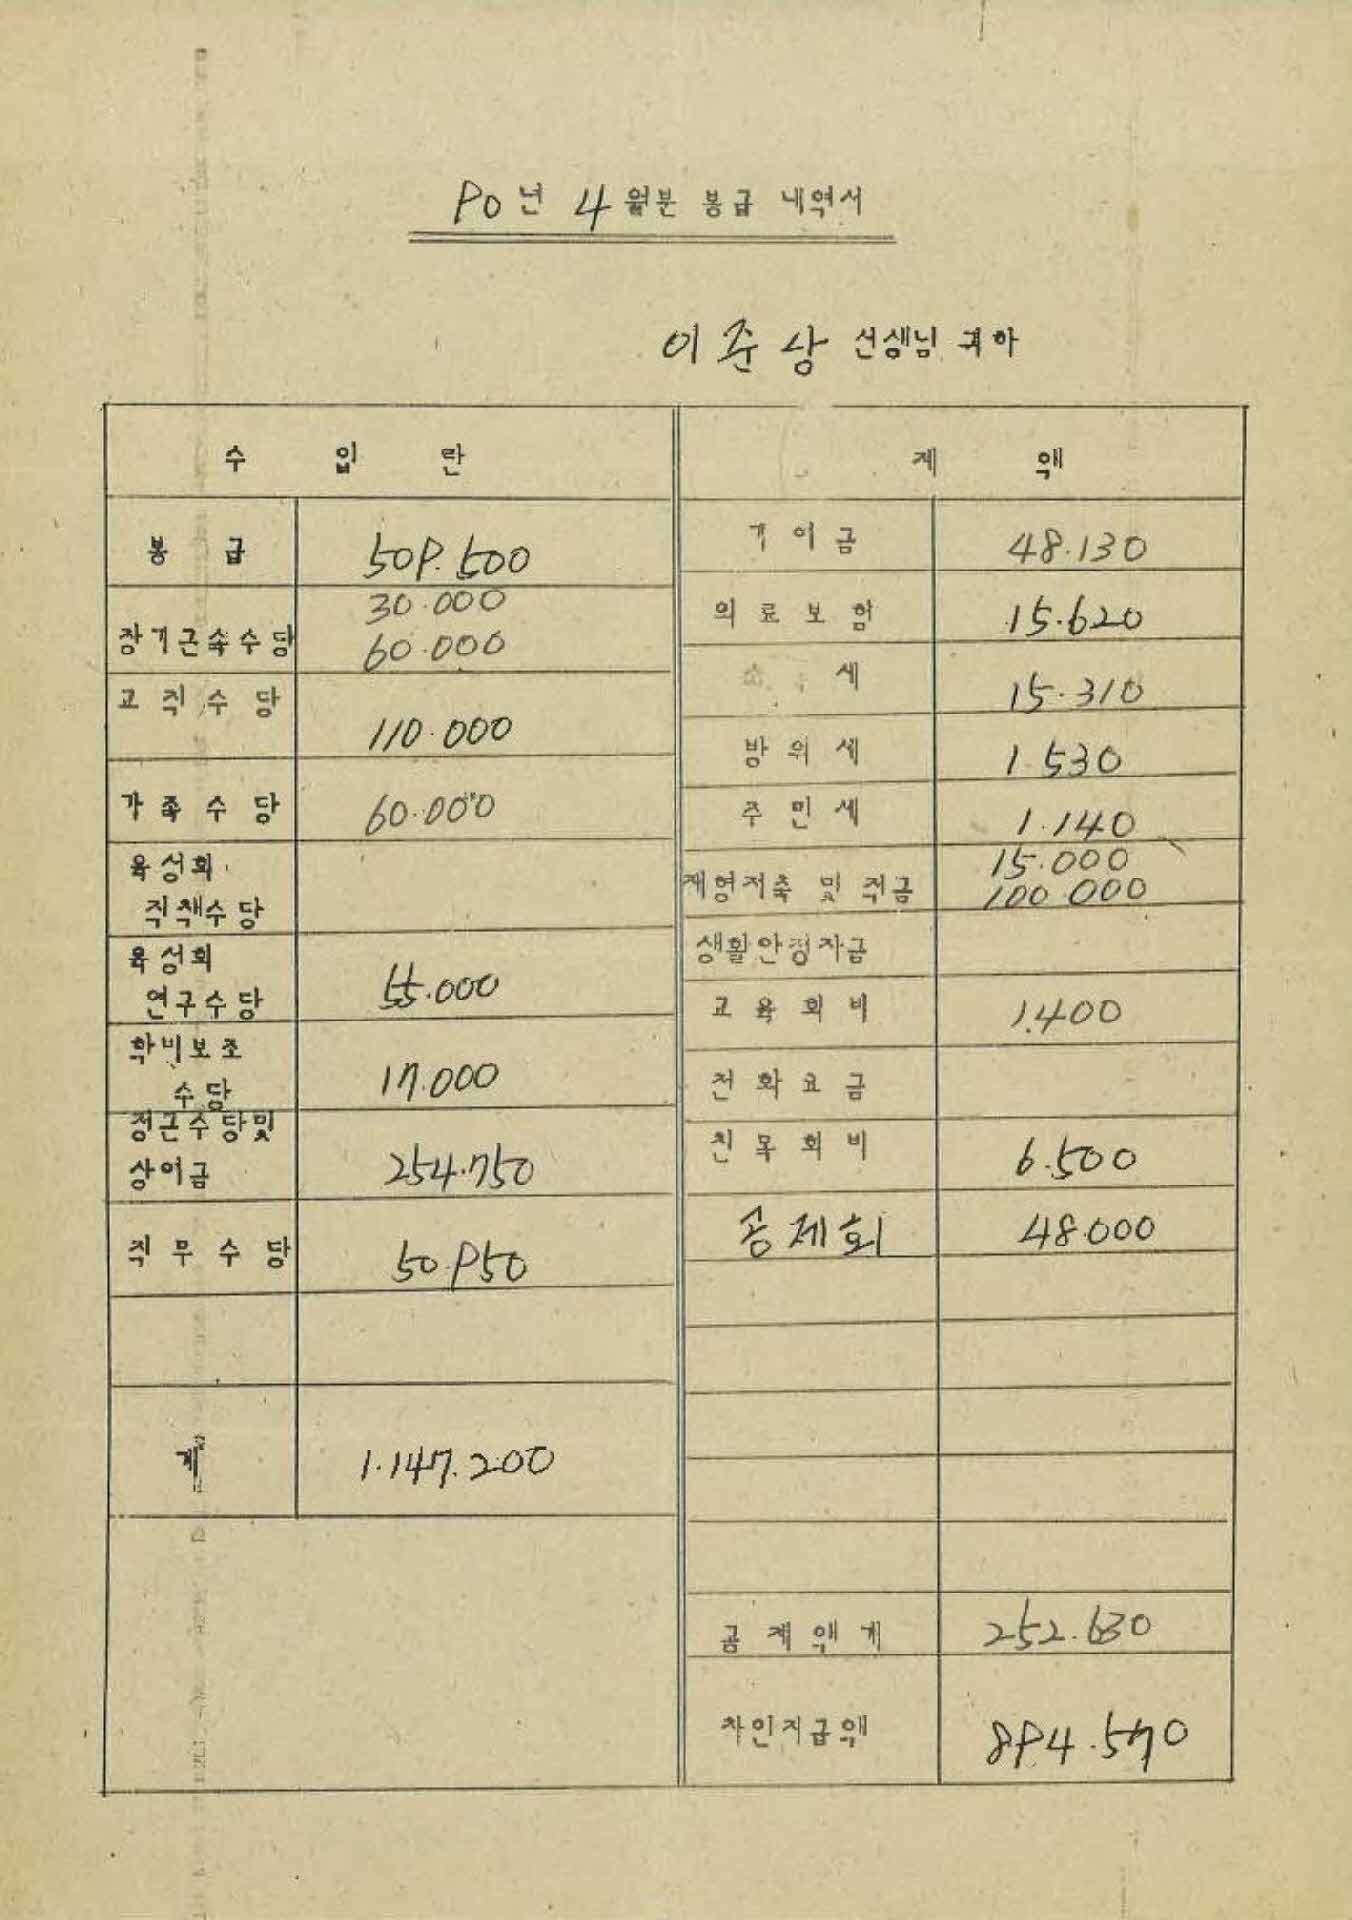 90년 4월분 봉급 내역서
이준상 선생님 귀하
수 입 란
제 액
봉 급 509.500
기여금 48.130
장기근속수당 30.000
60.000
의료보험 15.620
교직수당 110.000
세 15.310
방위세 1.530
가족수당 60.000
주민세 1.140
육성회
직책수당
재형저축 및 적금 15.000
100.000
생활안정자금
육성회
연구수당 55.000
교육회비 1.400
학비보조
수당 17.000
전화요금
정근수당및
상여금 254.750
친목회비 6.500
직무수당 50.950
공제회 48.000
계 1.147.200
공제액계 252.630
차인지급액 894.570